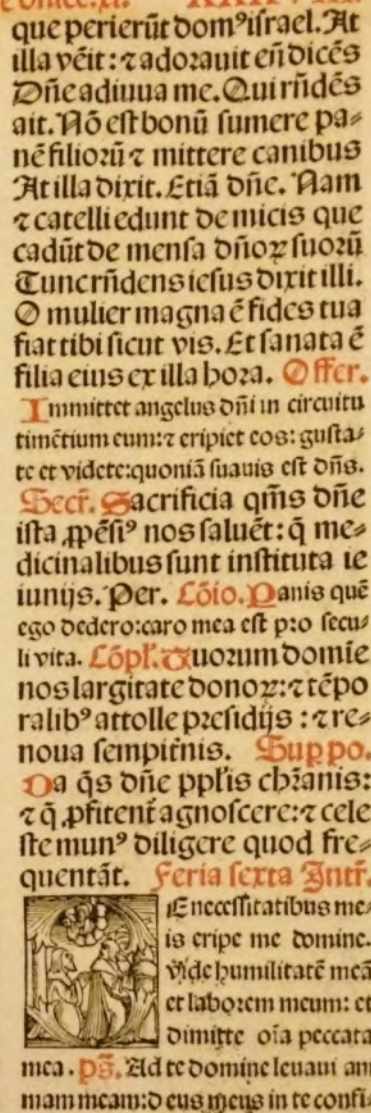 que perierūt domꝰ israel. At
illa vēit: ⁊ adorauit eū dicēs
Dñe adiuua me. Qui rñdēs
ait. Nō est bonū sumere pa⸗
nē filiorū ⁊ mittere canibus
At illa dixit. Etiā dñe. Nam
⁊ catelli edunt de micis que
cadūt de mensa dñoꝝ suorū
Tunc rñdens iesus dixit illi.
O mulier magna ē fides tua
fiat tibi sicut vis. Et sanata ē
filia eius ex illa hora. Offer.
Immittet angelus dñi in circuitu
timētium eum: ⁊ eripiet eos: gusta⸗
te et videte: quoniā suauis est dñs.
Secr̄. Sacrificia qm̄s dñe
ista ꝓpēsiꝰ nos saluēt: q̄ me⸗
dicinalibus sunt instituta ie
iunijs. Per. Cōio. Panis quē
ego dedero: caro mea est pro secu⸗
li vita. Cōpl̄. Tuorum domīe
nos largitate donoꝝ: ⁊ tēpo
ralibꝰ attolle presidijs : ⁊ re⸗
noua sempit̄nis. Sup po.
Da q̄s dñe ppl̄is chr̄ianis:
⁊ q̄ ꝓfitent̄ agnoscere: ⁊ cele
ste munꝰ diligere quod fre⸗
quentāt. Feria sexta Intr̄.
DE necessitatibus me⸗
is eripe me domine.
vide humilitatē meā
et laborem meum: et
dimitte oīa peccata
mea. ps̄. Ad te domine leuaui ani
mam meam: deus meus in te confi⸗